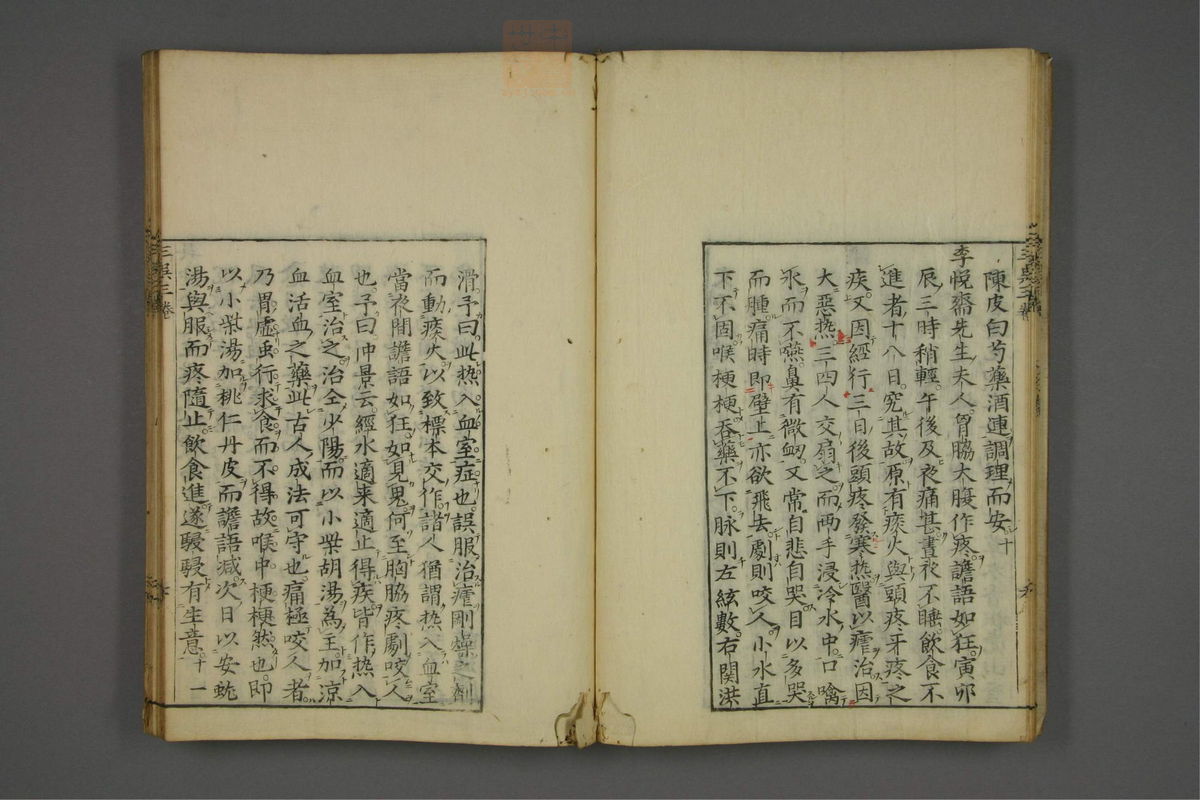 陳皮白芍藥酒連調理而安十
李悅齋先生夫人胷脇大腹作疼譫語如狂寅卯
辰三時稍輕午後及夜痛甚晝夜不睡飲食不
進者十八日究其故原有痰火與頭疼牙疼之
疾又因經行三日後頭疼發寒热醫以瘧治因
大惡热三四人交扇之而兩手浸冷水中口噙
氷而不嚥鼻有微衂又常自悲自哭目以多哭
而腫痛時即壁上亦欲飛去劇則咬人小水直
下不固喉梗梗吞藥不下脉則左絃數右関洪
滑予曰此热入血室症也誤服治瘧剛燥之劑
而動痰火以致標本交作諸人猶謂热入血室
當夜間譫語如狂如見鬼何至胸脇疼劇咬人
也予曰仲景云經水適来適止得疾皆作热入
血室治之治仝少陽而以小柴胡湯為主加凉
血活血之藥此古人成法可守也痛極咬人者
乃胃虛蟲行求食而不得故喉中梗梗然也即
以小柴湯加桃仁丹皮而譫語减次日以安蚘
湯與服而疼隨止飲食進遂駸駸有生意十一
三吳三卷